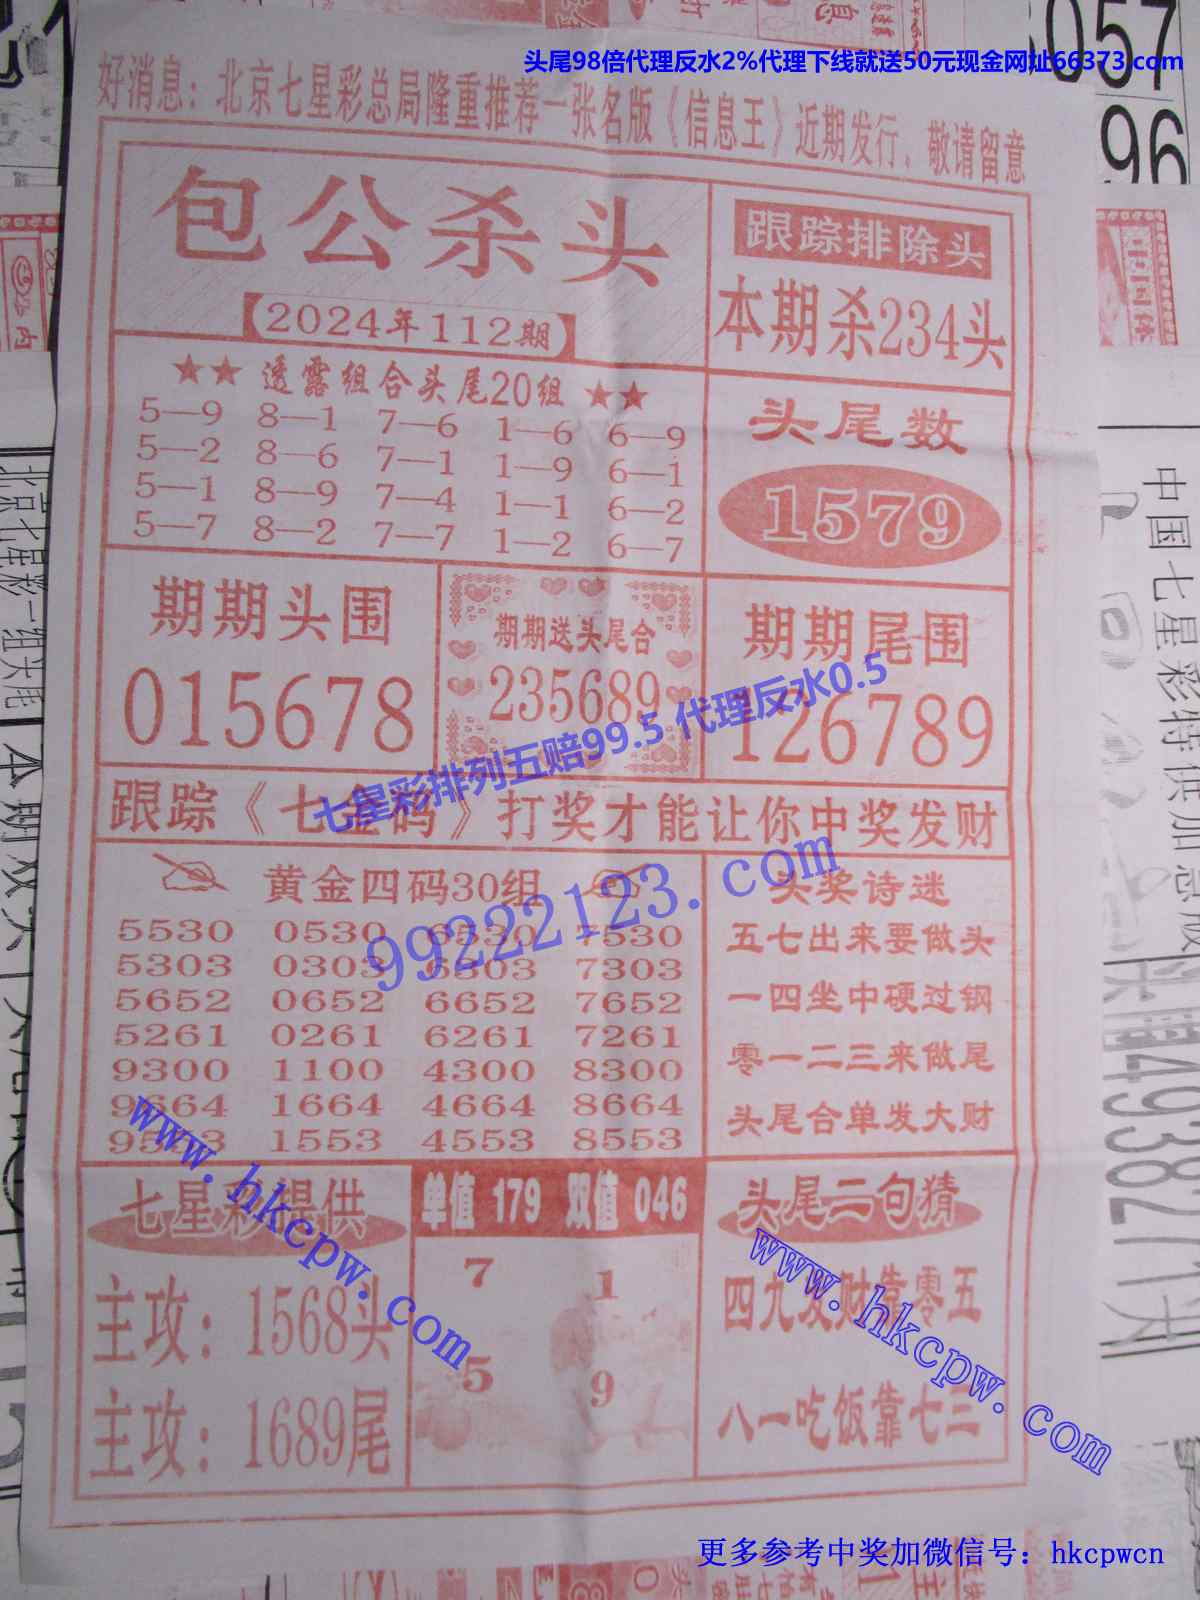 头尾98倍代理反水2%代理下线就送50元现金网址66373.com
好消息：北京七星彩总局隆重推荐一张名版《信息王》近期发行，敬请留意
057
96
包公杀头
【2024年112期】
跟踪排除头
本期杀234头
★★ 透露组合头尾20组 ★★
5—9 8—1 7—6 1—6 6—9
5—2 8—6 7—1 1—9 6—1
5—1 8—9 7—4 1—1 6—2
5—7 8—2 7—7 1—2 6—7
头尾数
1579
期期头围
015678
期期送头尾合
235689
期期尾围
126789
七星彩排列五赔99.5 代理反水0.5
跟踪《七金码》打奖才能让你中奖发财
黄金四码30组
5530 0530 6530 7530
5303 0303 6303 7303
5652 0652 6652 7652
5261 0261 6261 7261
9300 1100 4300 8300
9664 1664 4664 8664
9553 1553 4553 8553
99222123.com
头奖诗迷
五七出来要做头
一四坐中硬过钢
零一二三来做尾
头尾合单发大财
七星彩提供
主攻：1568头
主攻：1689尾
www.hkcpw.com
单值 179 双值 046
7 1
5 9
头尾二句猜
四九发财靠零五
八一吃饭靠七三
www.hkcpw.com
北京七星彩二组头尾
中国七星彩特供加急版
493827
更多参考中奖加微信号：hkcpwcn